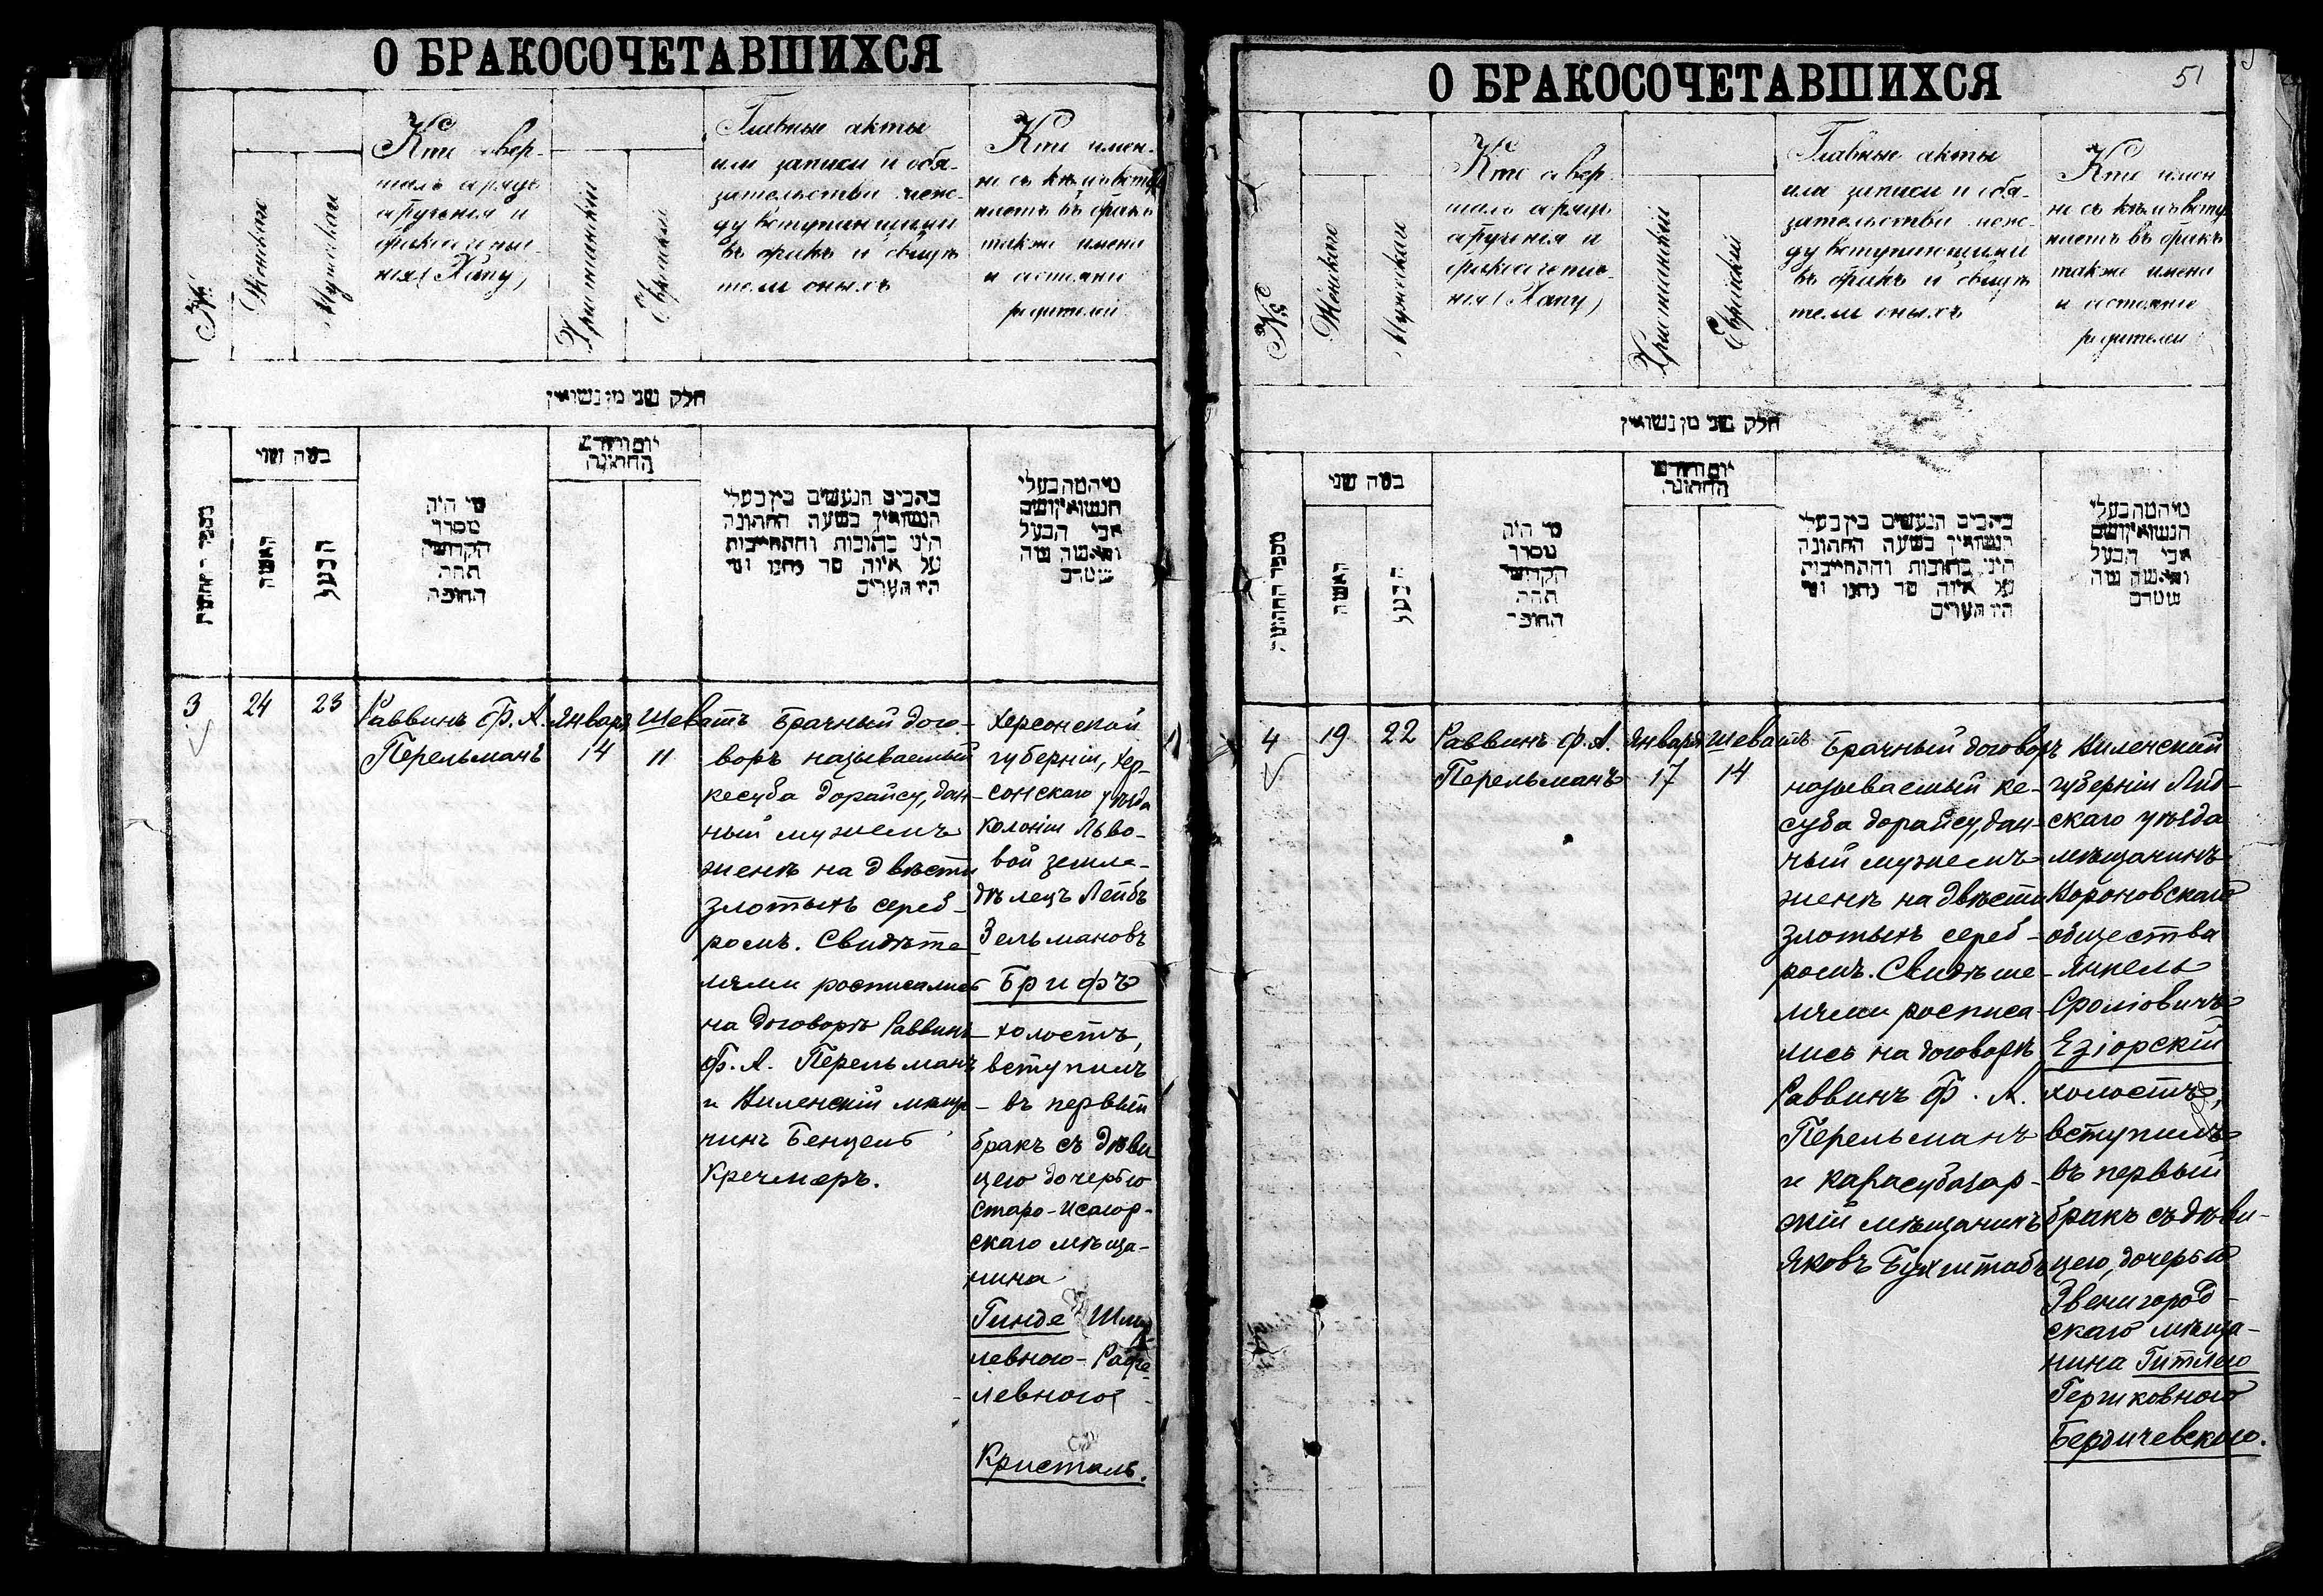 О БРАКОСОЧЕТАВШИХСЯ
№
Женскаго
Мужескаго
Кто совер-
шалъ обрядъ
обрученія и
бракосочета-
нія (Хупу)
Христіанскій
Еврейскій
Главные акты
или записи и обя-
зательства меж-
ду вступающими
въ бракъ и свидѣ-
тели оныхъ
Кто имен-
но съ кѣмъ всту-
паетъ въ бракъ
также имена
и состояніе
родителей
חלק שני מן נשואין
במה שני
יום וחדש
החתונה
מספר החתונות
האשה
הבעל
מי היה
מסדר
הקדושין
תחת
החופה
כתבים הנעשים בין בעלי
הנשואין בשעה החתונה
היינו כתובות והתחייבות
על איזה סך נתנו ומי
היו העדים
מי המה בעלי
הנשואין ושם
אבי הבעל
והאשה
3
24
23
Раввинъ Ф. А.
Перельманъ
Января
14
Шеватъ
11
Брачный дого-
воръ называемый
кесуба дорайсу, дан-
ный мужемъ
женѣ на двѣсти
злотыхъ сереб-
ромъ. Свидѣте
лями росписались
на договорѣ Раввинъ
Ф. А. Перельманъ
и Виленскій мѣща
нинъ Бенцель
Кречмеръ.
Херсонской
губерніи, Хер-
сонскаго уѣзда
колоніи Льво-
вой земле-
дѣлецъ Лейбъ
Зельмановъ
Брифъ
холостъ,
вступилъ
въ первый
бракъ съ дѣви
цею дочерью
Старо-
скаго мѣща-
нина
Гинде Шму
левною-Рафе
левною
Кристаль.
О БРАКОСОЧЕТАВШИХСЯ
51
№
Женскаго
Мужескаго
Кто совер-
шалъ обрядъ
обрученія и
бракосочета-
нія (Хупу)
Христіанскій
Еврейскій
Главные акты
или записи и обя-
зательства меж-
ду вступающими
въ бракъ и свидѣ-
тели оныхъ
Кто имен
но съ кѣмъ всту-
паетъ въ бракъ
также имена
и состояніе
родителей
חלק שני מן נשואין
במה שני
יום וחדש
החתונה
מספר החתונות
האשה
הבעל
מי היה
מסדר
הקדושין
תחת
החופה
כתבים הנעשים בין בעלי
הנשואין בשעה החתונה
היינו כתובות והתחייבות
על איזה סך נתנו ומי
היו העדים
מי המה בעלי
הנשואין ושם
אבי הבעל
והאשה
4
19
22
Раввинъ Ф. А.
Перельманъ
Января
17
Шеватъ
14
Брачный договоръ
называемый ке-
суба дорайсу, дан-
ный мужемъ
женѣ на двѣсти
злотыхъ сереб-
ромъ. Свидѣте-
лями росписа-
лись на договорѣ
Раввинъ Ф. А.
Перельманъ
и Карасубазар-
скій мѣщанинъ
Яковъ Бухштабъ
Виленской
губерніи Лид-
скаго уѣзда
мѣщанинъ
Вороновскаго
общества
Янкель
Сроліовичъ
Езіорскій
холостъ,
вступилъ
въ первый
бракъ съ дѣви-
цею, дочерью
Звенигород-
скаго мѣща-
нина Гитлею
Гершковною
Бердичевскою.